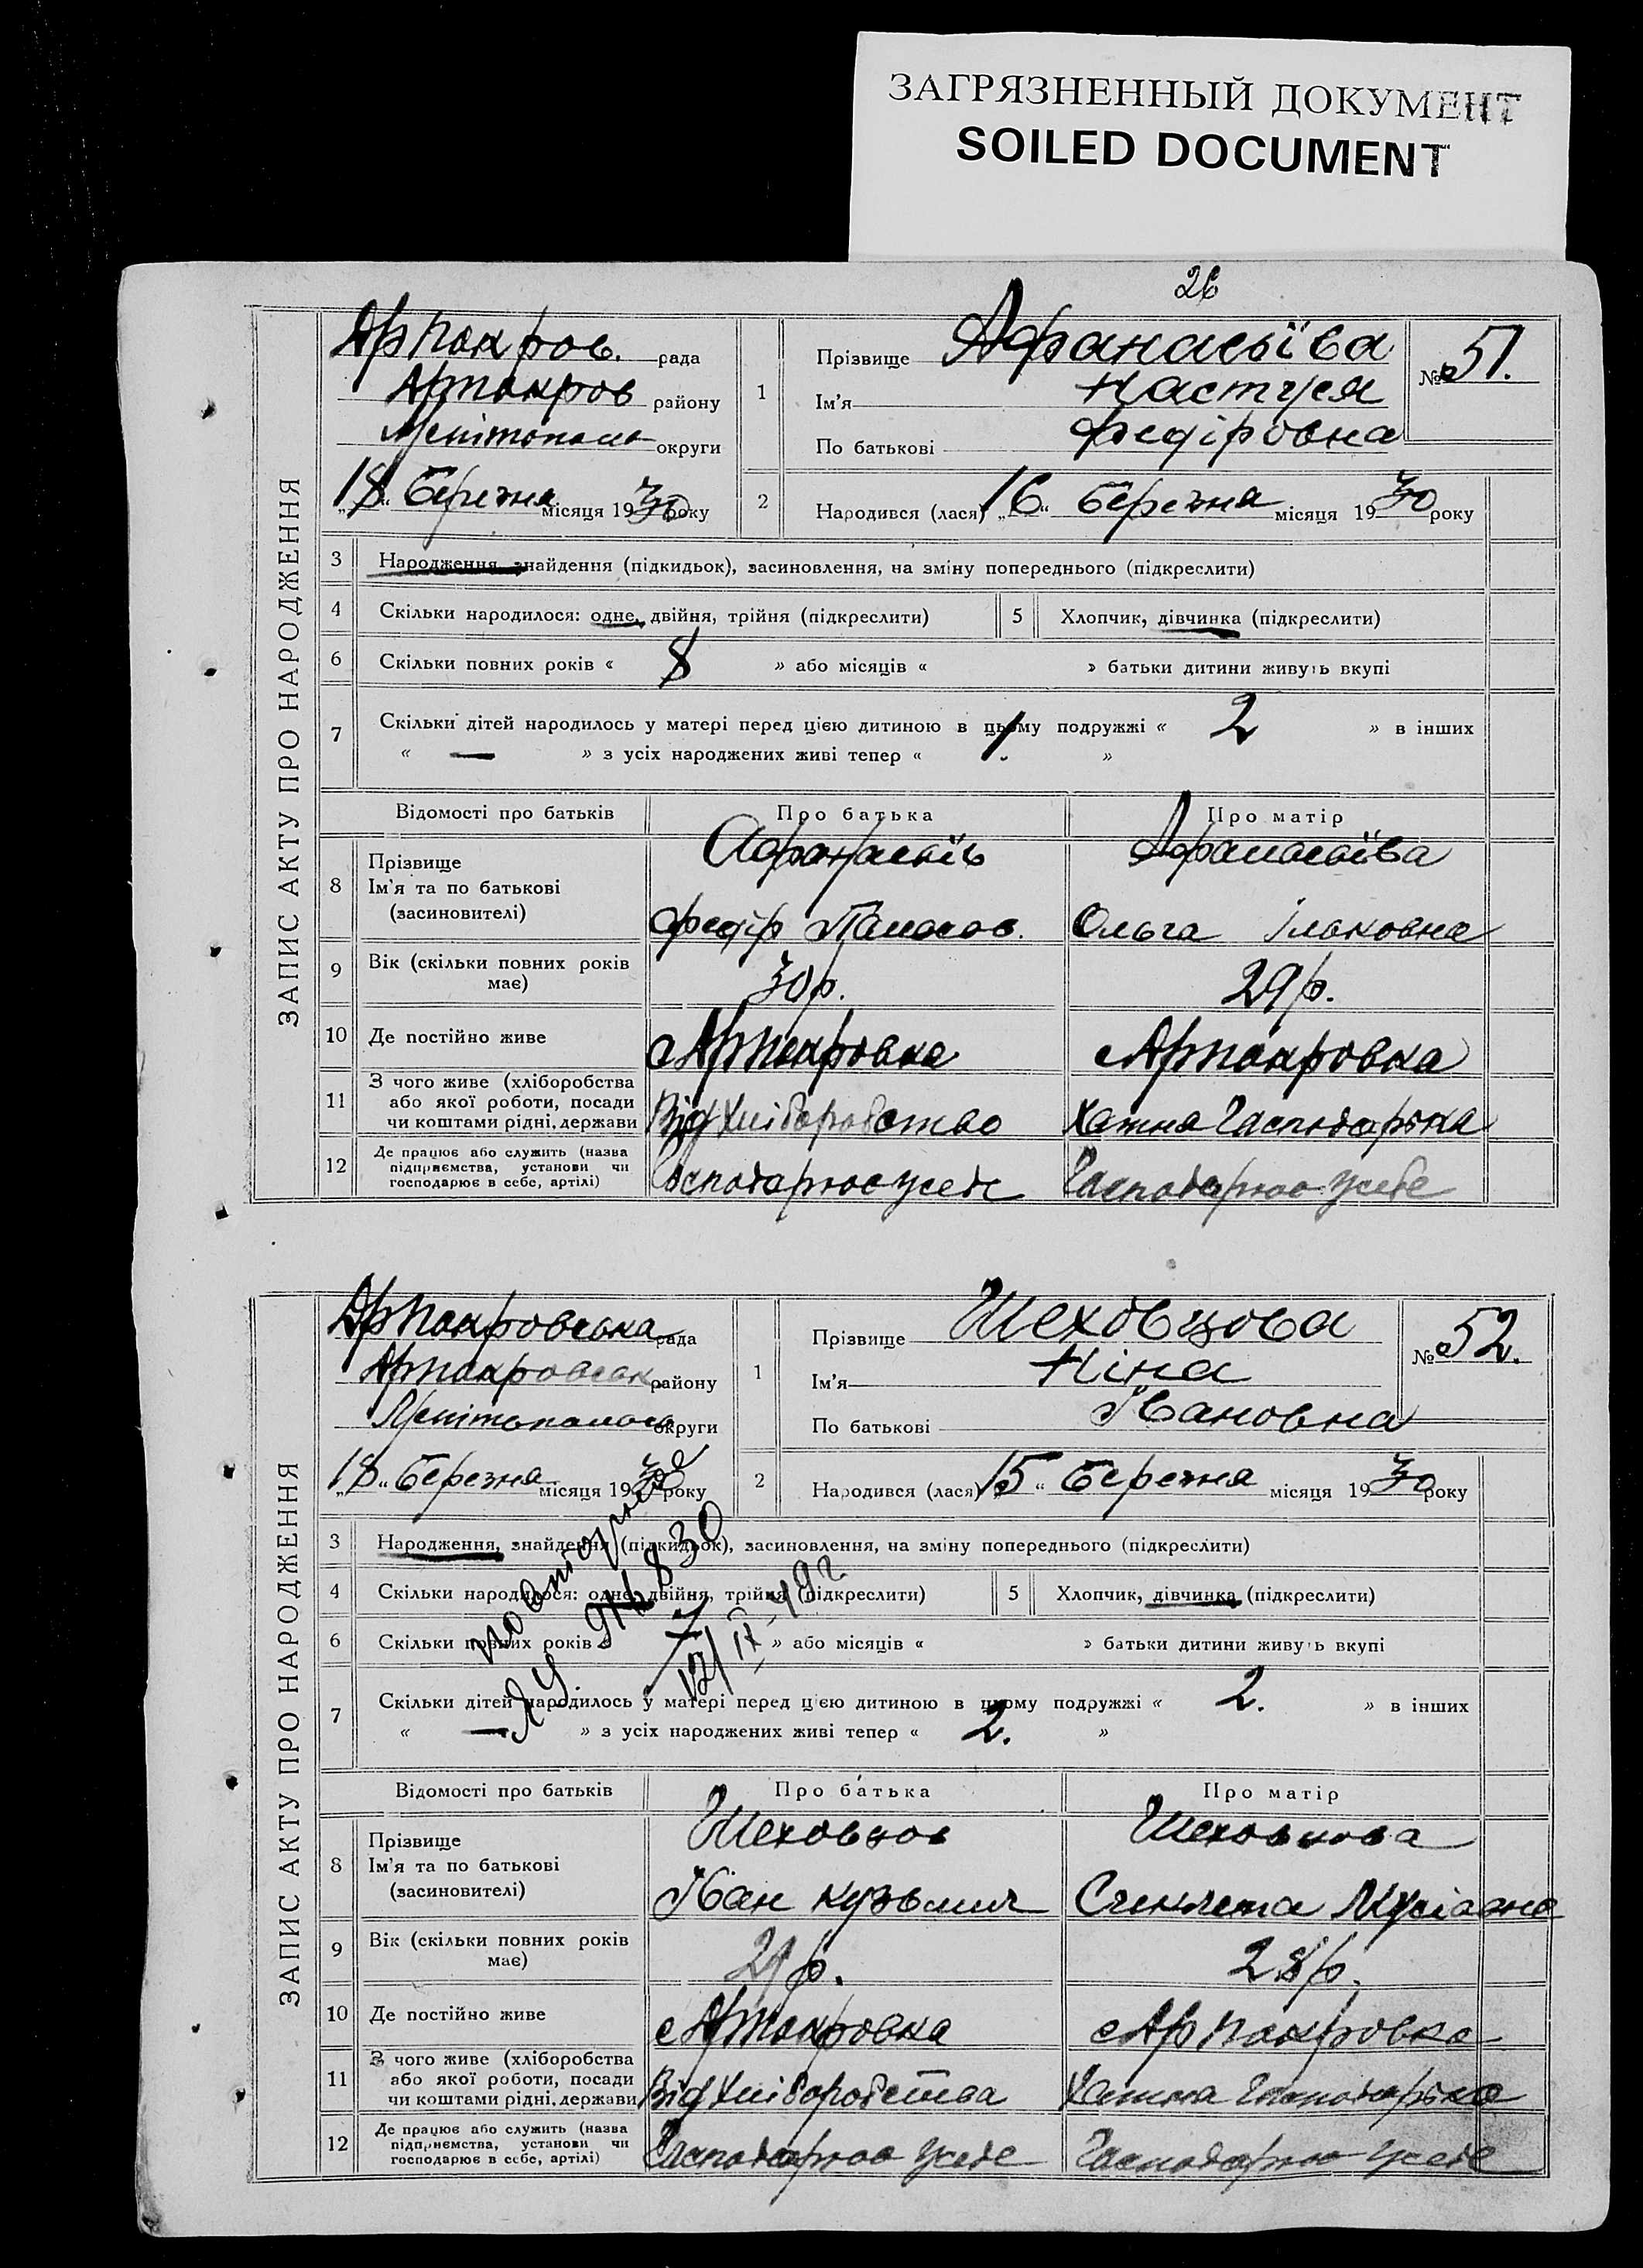 ЗАГРЯЗНЕННЫЙ ДОКУМЕНТ
SOILED DOCUMENT
26
ЗАПИС АКТУ ПРО НАРОДЖЕННЯ
Арпокров. рада
Арпокров району
округи
„18“ березня місяця 1930 року
1
Прізвище Афанасьїва
Ім'я Настуся
По батькові Федіровна
№ 51.
2
Народився (лася) „16“ березня місяця 1930 року
3 Народження, знайдення (підкидьок), засиновлення, на зміну попереднього (підкреслити)
4 Скільки народилося: одне, двійня, трійня (підкреслити) 5 Хлопчик, дівчинка (підкреслити)
6 Скільки повних років « 8 » або місяців « » батьки дитини живуть вкупі
7 Скільки дітей народилось у матері перед цією дитиною в цьому подружжі « 2 » в інших
« — » з усіх народжених живі тепер « 1. »
Відомості про батьків Про батька Про матір
8 Прізвище Афанасьїв Афанасьїва
Ім'я та по батькові
(засновителі) Федір Панасов. Ольга
9 Вік (скільки повних років має) 30 р. 29 р.
10 Де постійно живе с Арпокровка с Арпокровка
11 З чого живе (хліборобства
або якої роботи, посади
чи коштами рідні, держави Від хліборобство Хатня Господарька
12 Де працює або служить (назва
підприємства, установи чи
господарює в себе, артілі) Господарює у себе Господарює у себе
ЗАПИС АКТУ ПРО НАРОДЖЕННЯ
Арпокровська рада
Арпокровськ району
округи
„18“ березня місяця 1930 року
1
Прізвище Шеховцова
Ім'я Ніна
По батькові Івановна
№ 52.
2
Народився (лася) „15“ березня місяця 1930 року
3 Народження, знайдення (підкидьок), засиновлення, на зміну попереднього (підкреслити)
4 Скільки народилося: одне, двійня, трійня (підкреслити) 5 Хлопчик, дівчинка (підкреслити)
6 Скільки повних років « 7 » або місяців « » батьки дитини живуть вкупі
7 Скільки дітей народилось у матері перед цією дитиною в цьому подружжі « 2. » в інших
« — » з усіх народжених живі тепер « 2. »
повторное
Відомості про батьків Про батька Про матір
8 Прізвище Шеховцов Шеховцова
Ім'я та по батькові
(засиновителі) Іван Кузьмич
9 Вік (скільки повних років має) 29 р. 28 р.
10 Де постійно живе с Арпокровка с Арпокровка
11 З чого живе (хліборобства
або якої роботи, посади
чи коштами рідні, держави Від хліборобства Хатня Господарька
12 Де працює або служить (назва
підприємства, установи чи
господарює в себе, артілі) Господарює у себе Господарює у себе